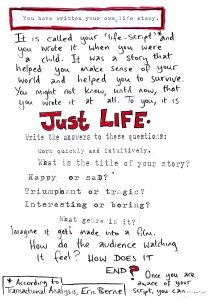 You have written your own life story.
It is called your 'life-script'* and
you wrote it when you were
a child. It was a story that
helped you make sense of your
world and helped you to survive.
You might not know, until now, that
you wrote it at all. To you, it is
JUST LIFE.
Write the answers to these questions:
Work quickly and intuitively.
What is the title of your story?
Happy or saD?
Triumphant or tragic?
Interesting or boring?
What genre is it?
Imagine it gets made into a film.
How do the audience watching
it feel? HOW DOES IT
END?
Once you are
aware of your
script, you can........
* According to
Transactional Analysis, Eric Berne